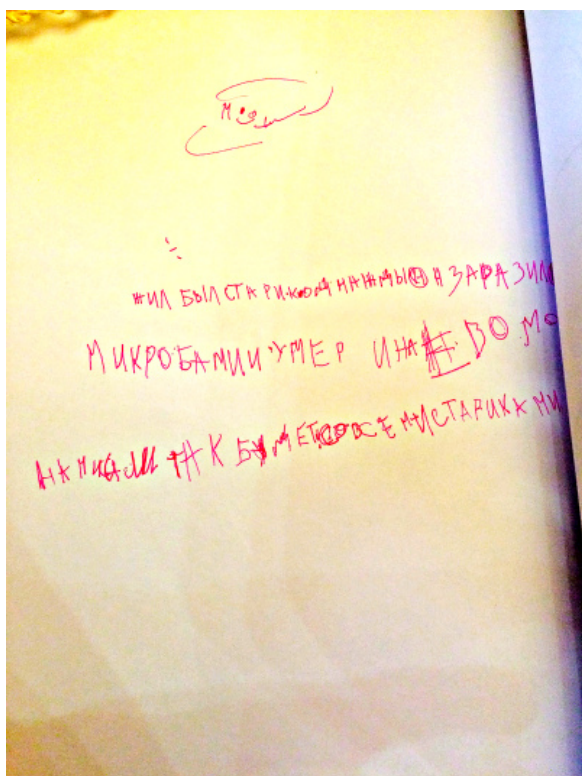 ЖИЛ БЫЛ СТАРИК ОМ НАЖМЫ И ЗАРАЗИЛ
МИКРОБАМИ И УМЕР И НА ЕВО МО
НАПИСАЛИ ТАК БУДЕТ СО ВСЕМИ СТАРИКАМИ